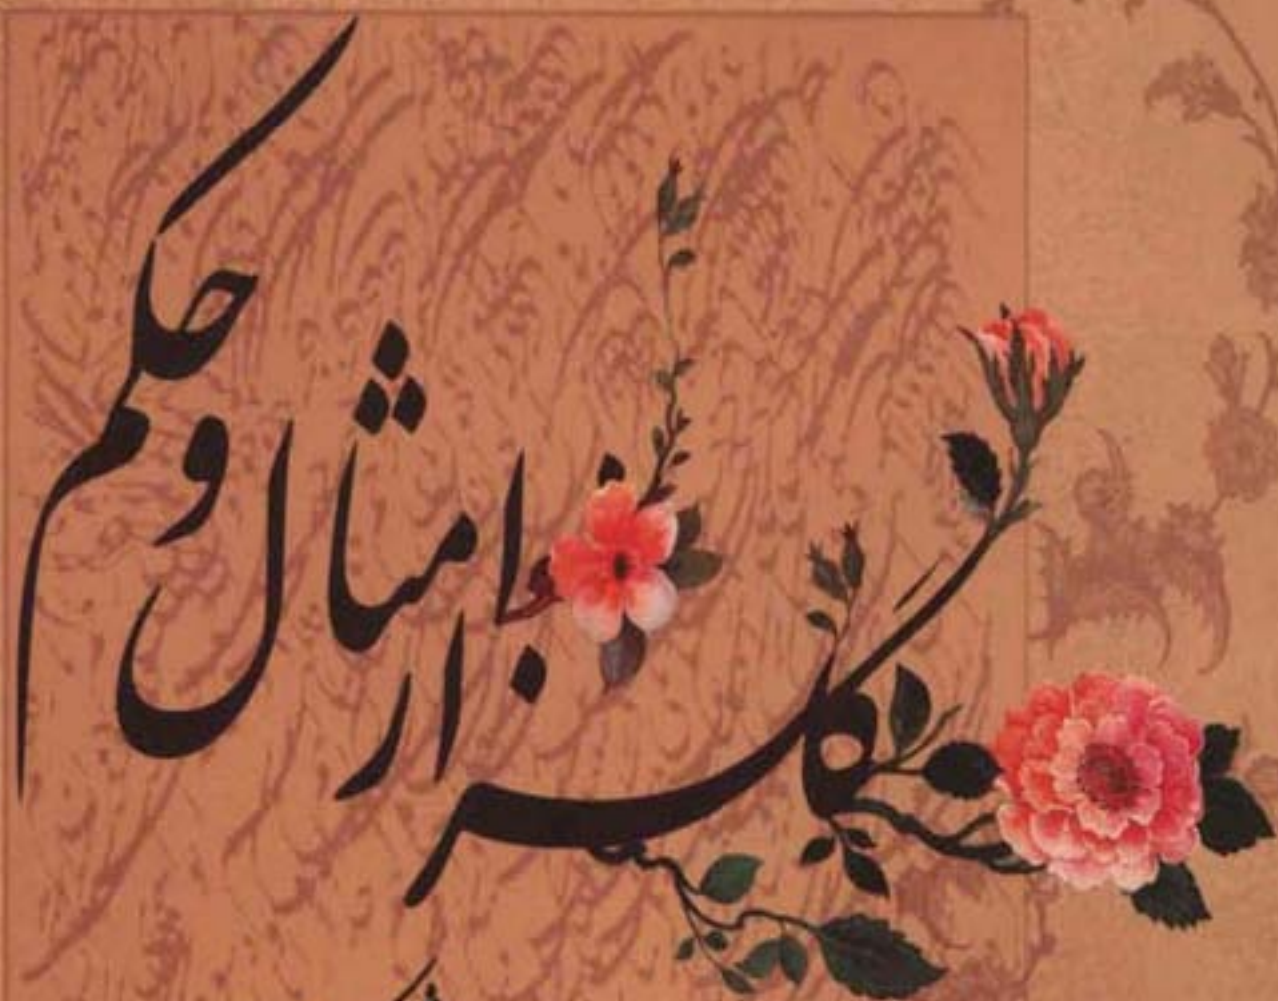 گلزار امثال و حکم